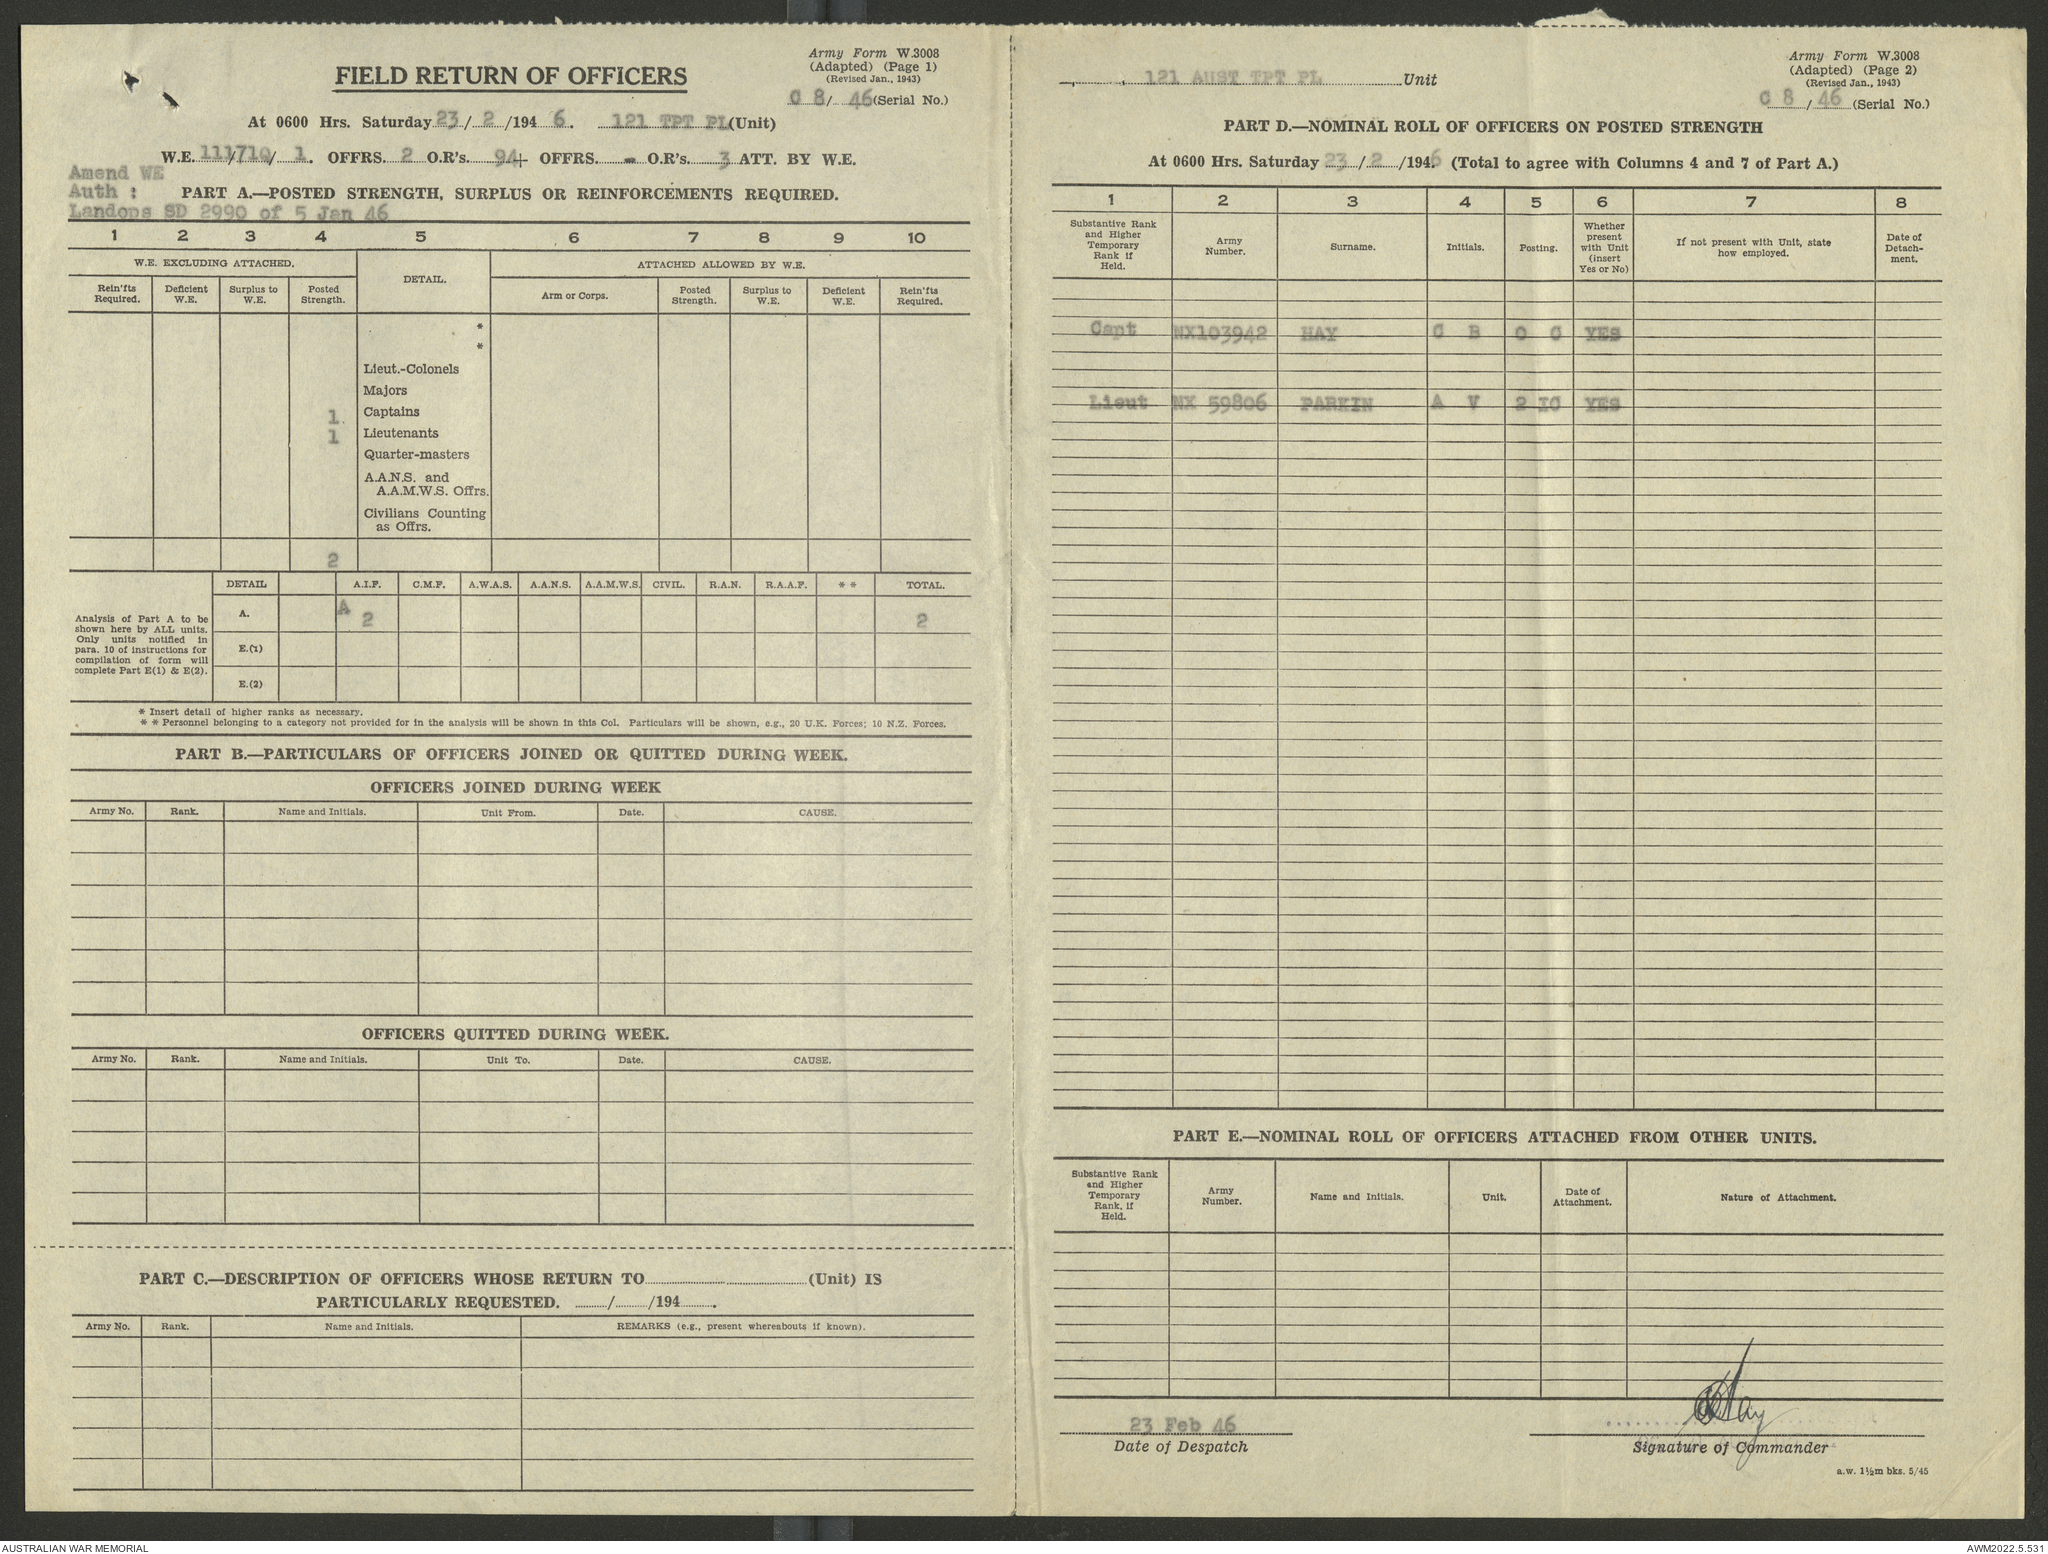 Army Form W.3008
(Adapted) (Page 1)
(Revised Jan., 1943)
FIELD RETURN OF OFFICERS
C 8/ 46 (Serial No.)
At 0600 Hrs. Saturday 23/ 2 /194 6. 121 TPT PL (Unit)
W.E. 111/710/ 1. OFFRS. 2 O.R's. 94+ OFFRS. - O.R's. 3 ATT. BY W.E.
Amend WE
Auth :
Landops SD 2990 of 5 Jan 46
PART A.—POSTED STRENGTH, SURPLUS OR REINFORCEMENTS REQUIRED.
1 2 3 4 5 6 7 8 9 10
W.E. EXCLUDING ATTACHED. DETAIL. ATTACHED ALLOWED BY W.E.
Rein'fts Required. Deficient W.E. Surplus to W.E. Posted Strength. Arm or Corps. Posted Strength. Surplus to W.E. Deficient W.E. Rein'fts Required.
*
*
Lieut.-Colonels
Majors
1. Captains
1 Lieutenants
Quarter-masters
A.A.N.S. and
A.A.M.W.S. Offrs.
Civilians Counting
as Offrs.
2
DETAIL A.I.F. C.M.F. A.W.A.S. A.A.N.S. A.A.M.W.S. CIVIL. R.A.N. R.A.A.F. * * TOTAL.
Analysis of Part A to be
shown here by ALL units.
Only units notified in
para. 10 of instructions for
compilation of form will
complete Part E(1) & E(2).
A. A 2 2
E.(1)
E.(2)
* Insert detail of higher ranks as necessary.
* * Personnel belonging to a category not provided for in the analysis will be shown in this Col. Particulars will be shown, e.g., 20 U.K. Forces; 10 N.Z. Forces.
PART B.—PARTICULARS OF OFFICERS JOINED OR QUITTED DURING WEEK.
OFFICERS JOINED DURING WEEK
Army No. Rank. Name and Initials. Unit From. Date. CAUSE.
OFFICERS QUITTED DURING WEEK.
Army No. Rank. Name and Initials. Unit To. Date. CAUSE.
PART C.—DESCRIPTION OF OFFICERS WHOSE RETURN TO (Unit) IS
PARTICULARLY REQUESTED. / /194 .
Army No. Rank. Name and Initials. REMARKS (e.g., present whereabouts if known).
Army Form W.3008
(Adapted) (Page 2)
(Revised Jan., 1943)
121 AUST TPT PL Unit
C 8 / 46 (Serial No.)
PART D.—NOMINAL ROLL OF OFFICERS ON POSTED STRENGTH
At 0600 Hrs. Saturday 23 / 2 /194 6 (Total to agree with Columns 4 and 7 of Part A.)
1 2 3 4 5 6 7 8
Substantive Rank and Higher Temporary Rank if Held. Army Number. Surname. Initials. Posting. Whether present with Unit (insert Yes or No) If not present with Unit, state how employed. Date of Detach-ment.
Capt NX103942 HAY C B O C YES
Lieut NX 59806 PARKIN A V 2 IC YES
PART E.—NOMINAL ROLL OF OFFICERS ATTACHED FROM OTHER UNITS.
Substantive Rank and Higher Temporary Rank, if Held. Army Number. Name and Initials. Unit. Date of Attachment. Nature of Attachment.
23 Feb 46
Date of Despatch
Hay
Signature of Commander
a.w. 1½m bks. 5/45
AUSTRALIAN WAR MEMORIAL
AWM2022.5.531